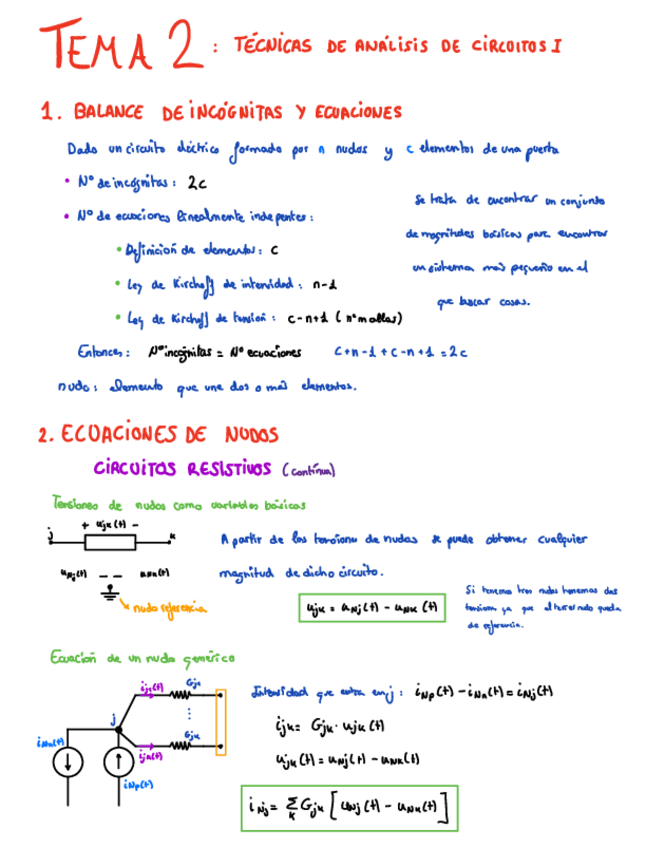 TEMA 2: TÉCNICAS DE ANÁLISIS DE CIRCUITOS I
1. BALANCE DE INCÓGNITAS Y ECUACIONES
Dado un circuito eléctrico formado por n nudos y c elementos de una puerta
• Nº de incógnitas: 2c
• Nº de ecuaciones linealmente indepentes:
• Definición de elementos: c
• Ley de Kirchoff de intensidad: n-1
• Ley de Kirchoff de tensión: c-n+1 (nº mallas)
Se trata de encontrar un conjunto
de magnitudes básicas para encontrar
un sistema más pequeño en el
que buscar cosas.
Entonces: Nº incógnitas = Nº ecuaciones c+n-1+c-n+1 = 2c
nudo: elemento que une dos o más elementos.
2. ECUACIONES DE NUDOS
CIRCUITOS RESISTIVOS (continua)
Tensiones de nudos como variables básicas
+ ujk(t) -
j k
A partir de las tensiones de nudos se puede obtener cualquier
magnitud de dicho circuito.
uNj(t) uNk(t)
nudo referencia
ujk = uNj(t) - uNk(t)
Si tenemos tres nudos tenemos dos
tensiones ya que el tercer nudo queda
de referencia.
Ecuación de un nudo genérico
ijk(t) Gjk
j
ijk(t) Gjk
iNn(t)
iNp(t)
Intensidad que entra en j: iNp(t) - iNn(t) = iNj(t)
ijk = Gjk · ujk(t)
ujk(t) = uNj(t) - uNk(t)
iNj = Σk Gjk [uNj(t) - uNk(t)]